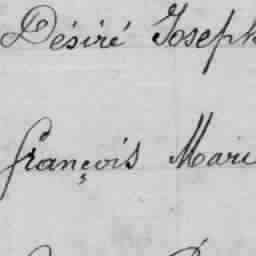 Désiré Joseph
François Marie